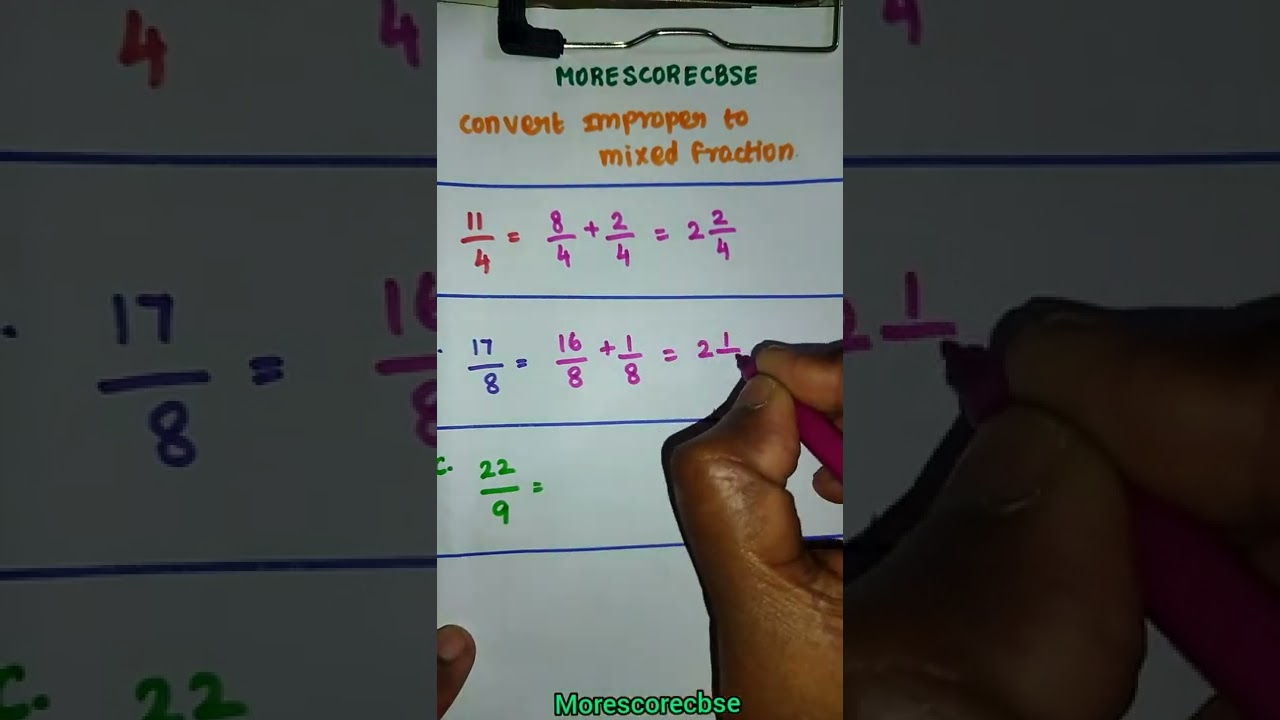 MORESCORECBSE
Convert Improper to
mixed Fraction.
11/4 = 8/4 + 2/4 = 2 2/4
. 17/8 = 16/8 + 1/8 = 2 1/
C. 22/9 =
Morescorecbse